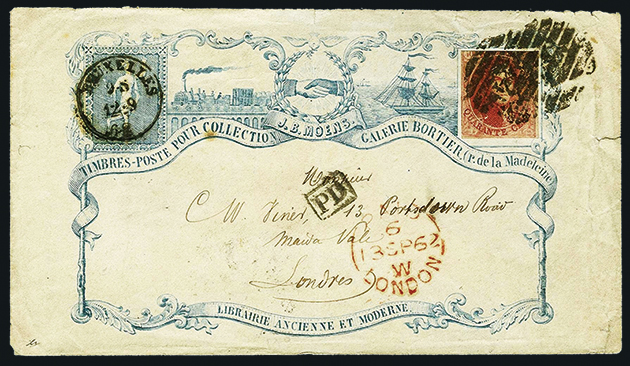 BRUXELLES
12-9
QUARANTE C
J. B. MOENS.
TIMBRES-POSTE POUR COLLECTION GALERIE BORTIER, (P. de la Madeleine)
PD
Monsieur
C. W. Viner, 13 Portsdown Road
Maida Vale
Londres
6
13 SP 62
W
LONDON
LIBRAIRIE ANCIENNE ET MODERNE